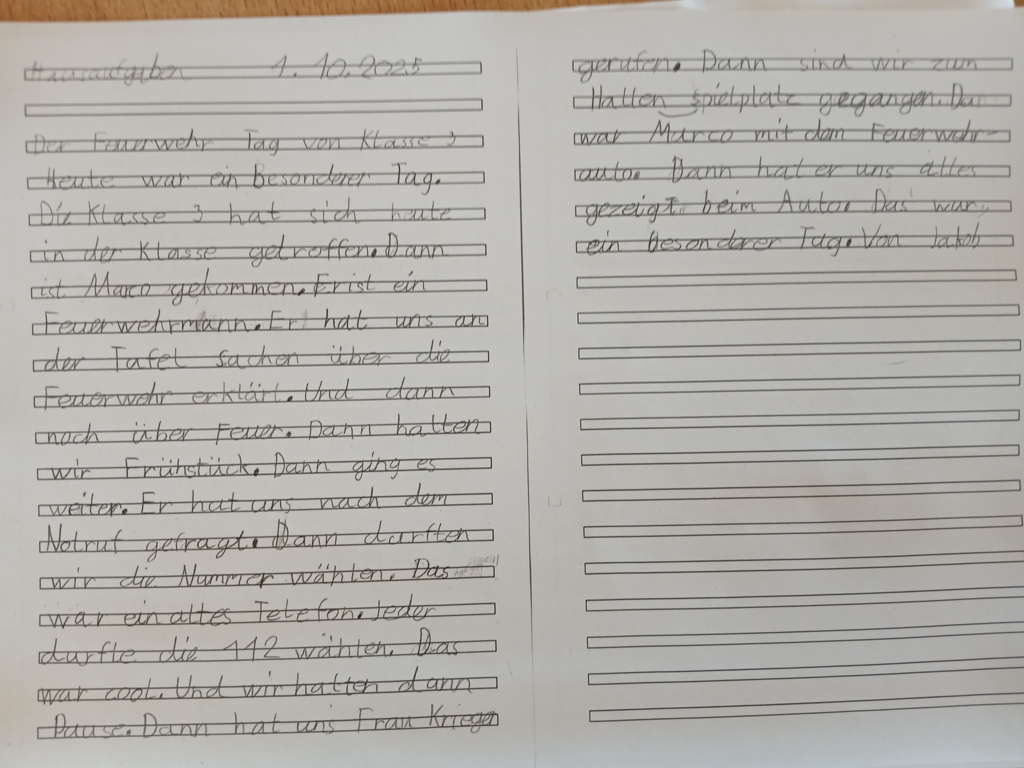 Hausaufgaben 1.10.2025
Der Feuerwehr Tag von Klasse 3
Heute war ein Besonderer Tag.
Die Klasse 3 hat sich heute
in der Klasse getroffen. Dann
ist Marco gekommen. Er ist ein
Feuerwehrmann. Er hat uns an
der Tafel sachen über die
Feuerwehr erklärt. Und dann
noch über Feuer. Dann hatten
wir Frühstück. Dann ging es
weiter. Er hat uns nach dem
Notruf gefragt. Dann durften
wir die Nummer wählen. Das
war ein altes Telefon. Jeder
durfte die 112 wählen. Das
war cool. Und wir hatten dann
Pause. Dann hat uns Frau Krieger
gerufen. Dann sind wir zum
Hallen spielplatz gegangen. Da
war Marco mit dem Feuerwehr-
auto. Dann hat er uns alles
gezeigt beim Auto. Das war
ein Besonderer Tag. Von Jakob